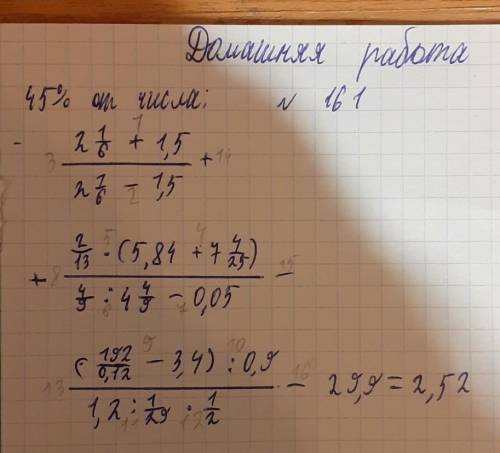 Домашняя работа
45% от числа: № 161
2 1/6 + 1,5
2 1/6 - 1,5 +
2/13 · (5,84 + 7 4/25)
+ 4/9 : 4 4/9 - 0,05 -
(192/0,12 - 3,4) : 0,9
1,2 : 1/29 · 1/2 - 29,9 = 2,52